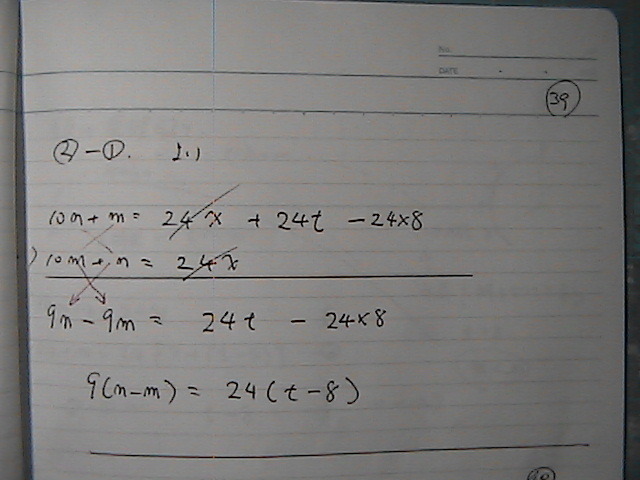 No.
DATE
39
②-①. より
10n+m= 24x + 24t -24×8
) 10m+n = 24x
9n - 9m = 24t - 24×8
9(n-m) = 24(t-8)